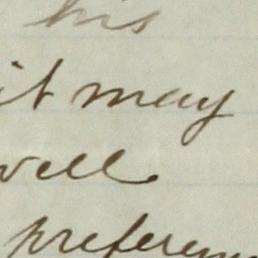 his
it may
well
preferen